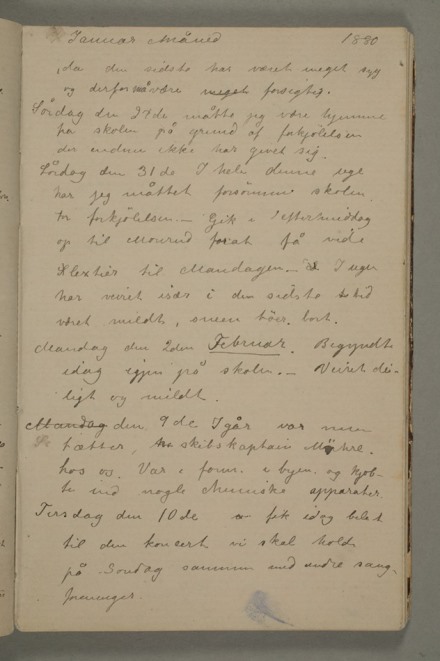 Januar Måned 1880
, da den sidste har været meget syg
og derfor må være meget forsigtig.
Lördag den 24de måtte jeg være hjemme
fra skolen på grund af forkjölelsen
der endnu ikke har givet sig.
Lördag den 31de I hele denne uge
har jeg måttet forsömme skolen
for forkjölelsen. — Gik i eftermiddag
op til Monrad forat få vide
Lextier til Mandagen. — I ugen
har veiret især i den sidste tid
været mildt, sneen bort.
Mandag den 2den Februar. Begyndte
idag igjen på skolen. — Veiret dei-
ligt og mildt.
Mandag den 9de Igår var min
fætter, skibskaptain
hos os. Var i form. i byen og kjöb-
te ind nogle chemiske apparater.
Tirsdag den 10de fik idag bilet
til den konsert vi skal holde
på Söndag sammen med andre sang-
foreninger.